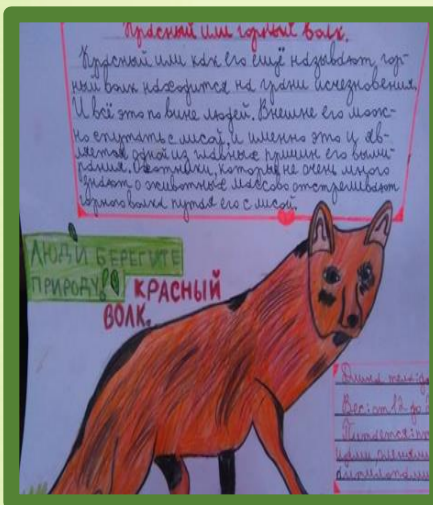 Красный или горный волк.
Красный или как его ещё называют, гор-
ный волк находится на грани исчезновения.
И всё это по вине людей. Внешне его мож-
но спутать с лисой, и именно это и яв-
ляется одной из главных причин его выми-
рания. Охотники, которые не очень много
знают о животных массово отстреливают
горного волка путая его с лисой.
ЛЮДИ БЕРЕГИТЕ
ПРИРОДУ!
КРАСНЫЙ
ВОЛК.
Длина тела: д
Вес: от 12 до
Питается: